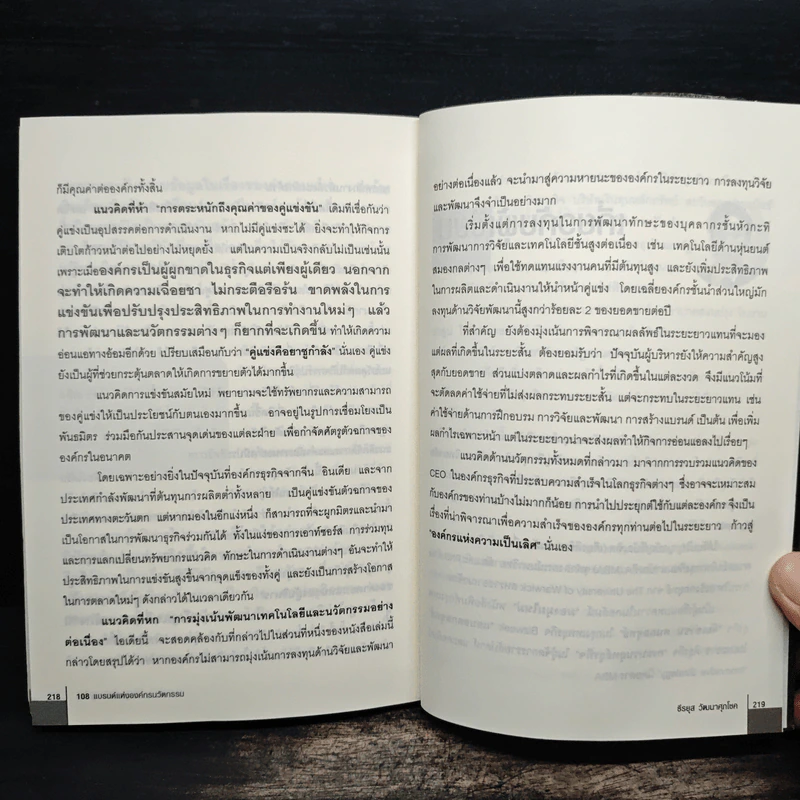 ก็มีคุณค่าต่อองค์กรทั้งสิ้น
แนวคิดที่ห้า "การตระหนักถึงคุณค่าของคู่แข่งขัน" เดิมที่เชื่อกันว่า
คู่แข่งเป็นอุปสรรคต่อการดำเนินงาน หากไม่มีคู่แข่งซะได้ ยิ่งจะทำให้กิจการ
เติบโตก้าวหน้าต่อไปอย่างไม่หยุดยั้ง แต่ในความเป็นจริงกลับไม่เป็นเช่นนั้น
เพราะเมื่อองค์กรเป็นผู้ผูกขาดในธุรกิจแต่เพียงผู้เดียว นอกจาก
จะทำให้เกิดความเฉื่อยชา ไม่กระตือรือร้น ขาดพลังในการ
แข่งขันเพื่อปรับปรุงประสิทธิภาพในการทำงานใหม่ๆ แล้ว
การพัฒนาและนวัตกรรมต่างๆ ก็ยากที่จะเกิดขึ้น ทำให้เกิดความ
อ่อนแอทางอ้อมอีกด้วย เปรียบเสมือนกับว่า "คู่แข่งคือยาชูกำลัง" นั่นเอง คู่แข่ง
ยังเป็นผู้ที่ช่วยกระตุ้นตลาดให้เกิดการขยายตัวได้มากขึ้น
แนวคิดการแข่งขันสมัยใหม่ พยายามจะใช้ทรัพยากรและความสามารถ
ของคู่แข่งให้เป็นประโยชน์กับตนเองมากขึ้น อาจอยู่ในรูปการเชื่อมโยงเป็น
พันธมิตร ร่วมมือกันประสานจุดเด่นของแต่ละฝ่าย เพื่อกำจัดศัตรูตัวฉกาจของ
องค์กรในอนาคต
โดยเฉพาะอย่างยิ่งในปัจจุบันที่องค์กรธุรกิจจากจีน อินเดีย และจาก
ประเทศกำลังพัฒนาที่ต้นทุนการผลิตต่ำทั้งหลาย เป็นคู่แข่งขันตัวฉกาจของ
ประเทศทางตะวันตก แต่หากมองในอีกแง่หนึ่ง ก็สามารถที่จะผูกมิตรและนำมา
เป็นโอกาสในการพัฒนาธุรกิจร่วมกันได้ ทั้งในแง่ของการเอาท์ซอร์ส การร่วมทุน
และการแลกเปลี่ยนทรัพยากรแนวคิด ทักษะในการดำเนินงานต่างๆ อันจะทำให้
ประสิทธิภาพในการแข่งขันสูงขึ้นจากจุดแข็งของทั้งคู่ และยังเป็นการสร้างโอกาส
ในการตลาดใหม่ๆ ดังกล่าวได้ในเวลาเดียวกัน
แนวคิดที่หก "การมุ่งเน้นพัฒนาเทคโนโลยีและนวัตกรรมอย่าง
ต่อเนื่อง" ไอเดียนี้ จะสอดคล้องกับที่กล่าวไปในส่วนที่หนึ่งของหนังสือเล่มนี้
กล่าวโดยสรุปได้ว่า หากองค์กรไม่สามารถมุ่งเน้นการลงทุนด้านวิจัยและพัฒนา
218 108 แบรนด์แต่งองค์กรนวัตกรรม
อย่างต่อเนื่องแล้ว จะนำมาสู่ความหายนะขององค์กรในระยะยาว การลงทุนวิจัย
และพัฒนาจึงจำเป็นอย่างมาก
เริ่มตั้งแต่การลงทุนในการพัฒนาทักษะของบุคลากรชั้นหัวกะทิ
การพัฒนาการวิจัยและเทคโนโลยีชั้นสูงต่อเนื่อง เช่น เทคโนโลยีด้านหุ่นยนต์
สมองกลต่างๆ เพื่อใช้ทดแทนแรงงานคนที่มีต้นทุนสูง และยังเพิ่มประสิทธิภาพ
ในการผลิตและดำเนินงานให้นำหน้าคู่แข่ง โดยเฉลี่ยองค์กรชั้นนำส่วนใหญ่มัก
ลงทุนด้านวิจัยพัฒนานี้สูงกว่าร้อยละ 2 ของยอดขายต่อปี
ที่สำคัญ ยังต้องมุ่งเน้นการพิจารณาผลลัพธ์ในระยะยาวแทนที่จะมอง
แต่ผลที่เกิดขึ้นในระยะสั้น ต้องยอมรับว่า ปัจจุบันผู้บริหารยังให้ความสำคัญสูง
สุดกับยอดขาย ส่วนแบ่งตลาดและผลกำไรที่เกิดขึ้นในแต่ละงวด จึงมีแนวโน้มที่
จะตัดลดค่าใช้จ่ายที่ไม่ส่งผลกระทบระยะสั้น แต่จะกระทบในระยะยาวแทน เช่น
ค่าใช้จ่ายด้านการฝึกอบรม การวิจัยและพัฒนา การสร้างแบรนด์ เป็นต้น เพื่อเพิ่ม
ผลกำไรเฉพาะหน้า แต่ในระยะยาวน่าจะส่งผลทำให้กิจการอ่อนแอลงไปเรื่อยๆ
แนวคิดด้านนวัตกรรมทั้งหมดที่กล่าวมา มาจากการรวบรวมแนวคิดของ
CEO ในองค์กรธุรกิจที่ประสบความสำเร็จในโลกธุรกิจต่างๆ ซึ่งอาจจะเหมาะสม
กับองค์กรของท่านบ้างไม่มากก็น้อย การนำไปประยุกต์ใช้กับแต่ละองค์กร จึงเป็น
เรื่องที่น่าพิจารณาเพื่อความสำเร็จขององค์กรทุกท่านต่อไปในระยะยาว ก้าวสู่
"องค์กรแห่งความเป็นเลิศ" นั่นเอง
ธีรยุส วัฒนาศุภโชค 219